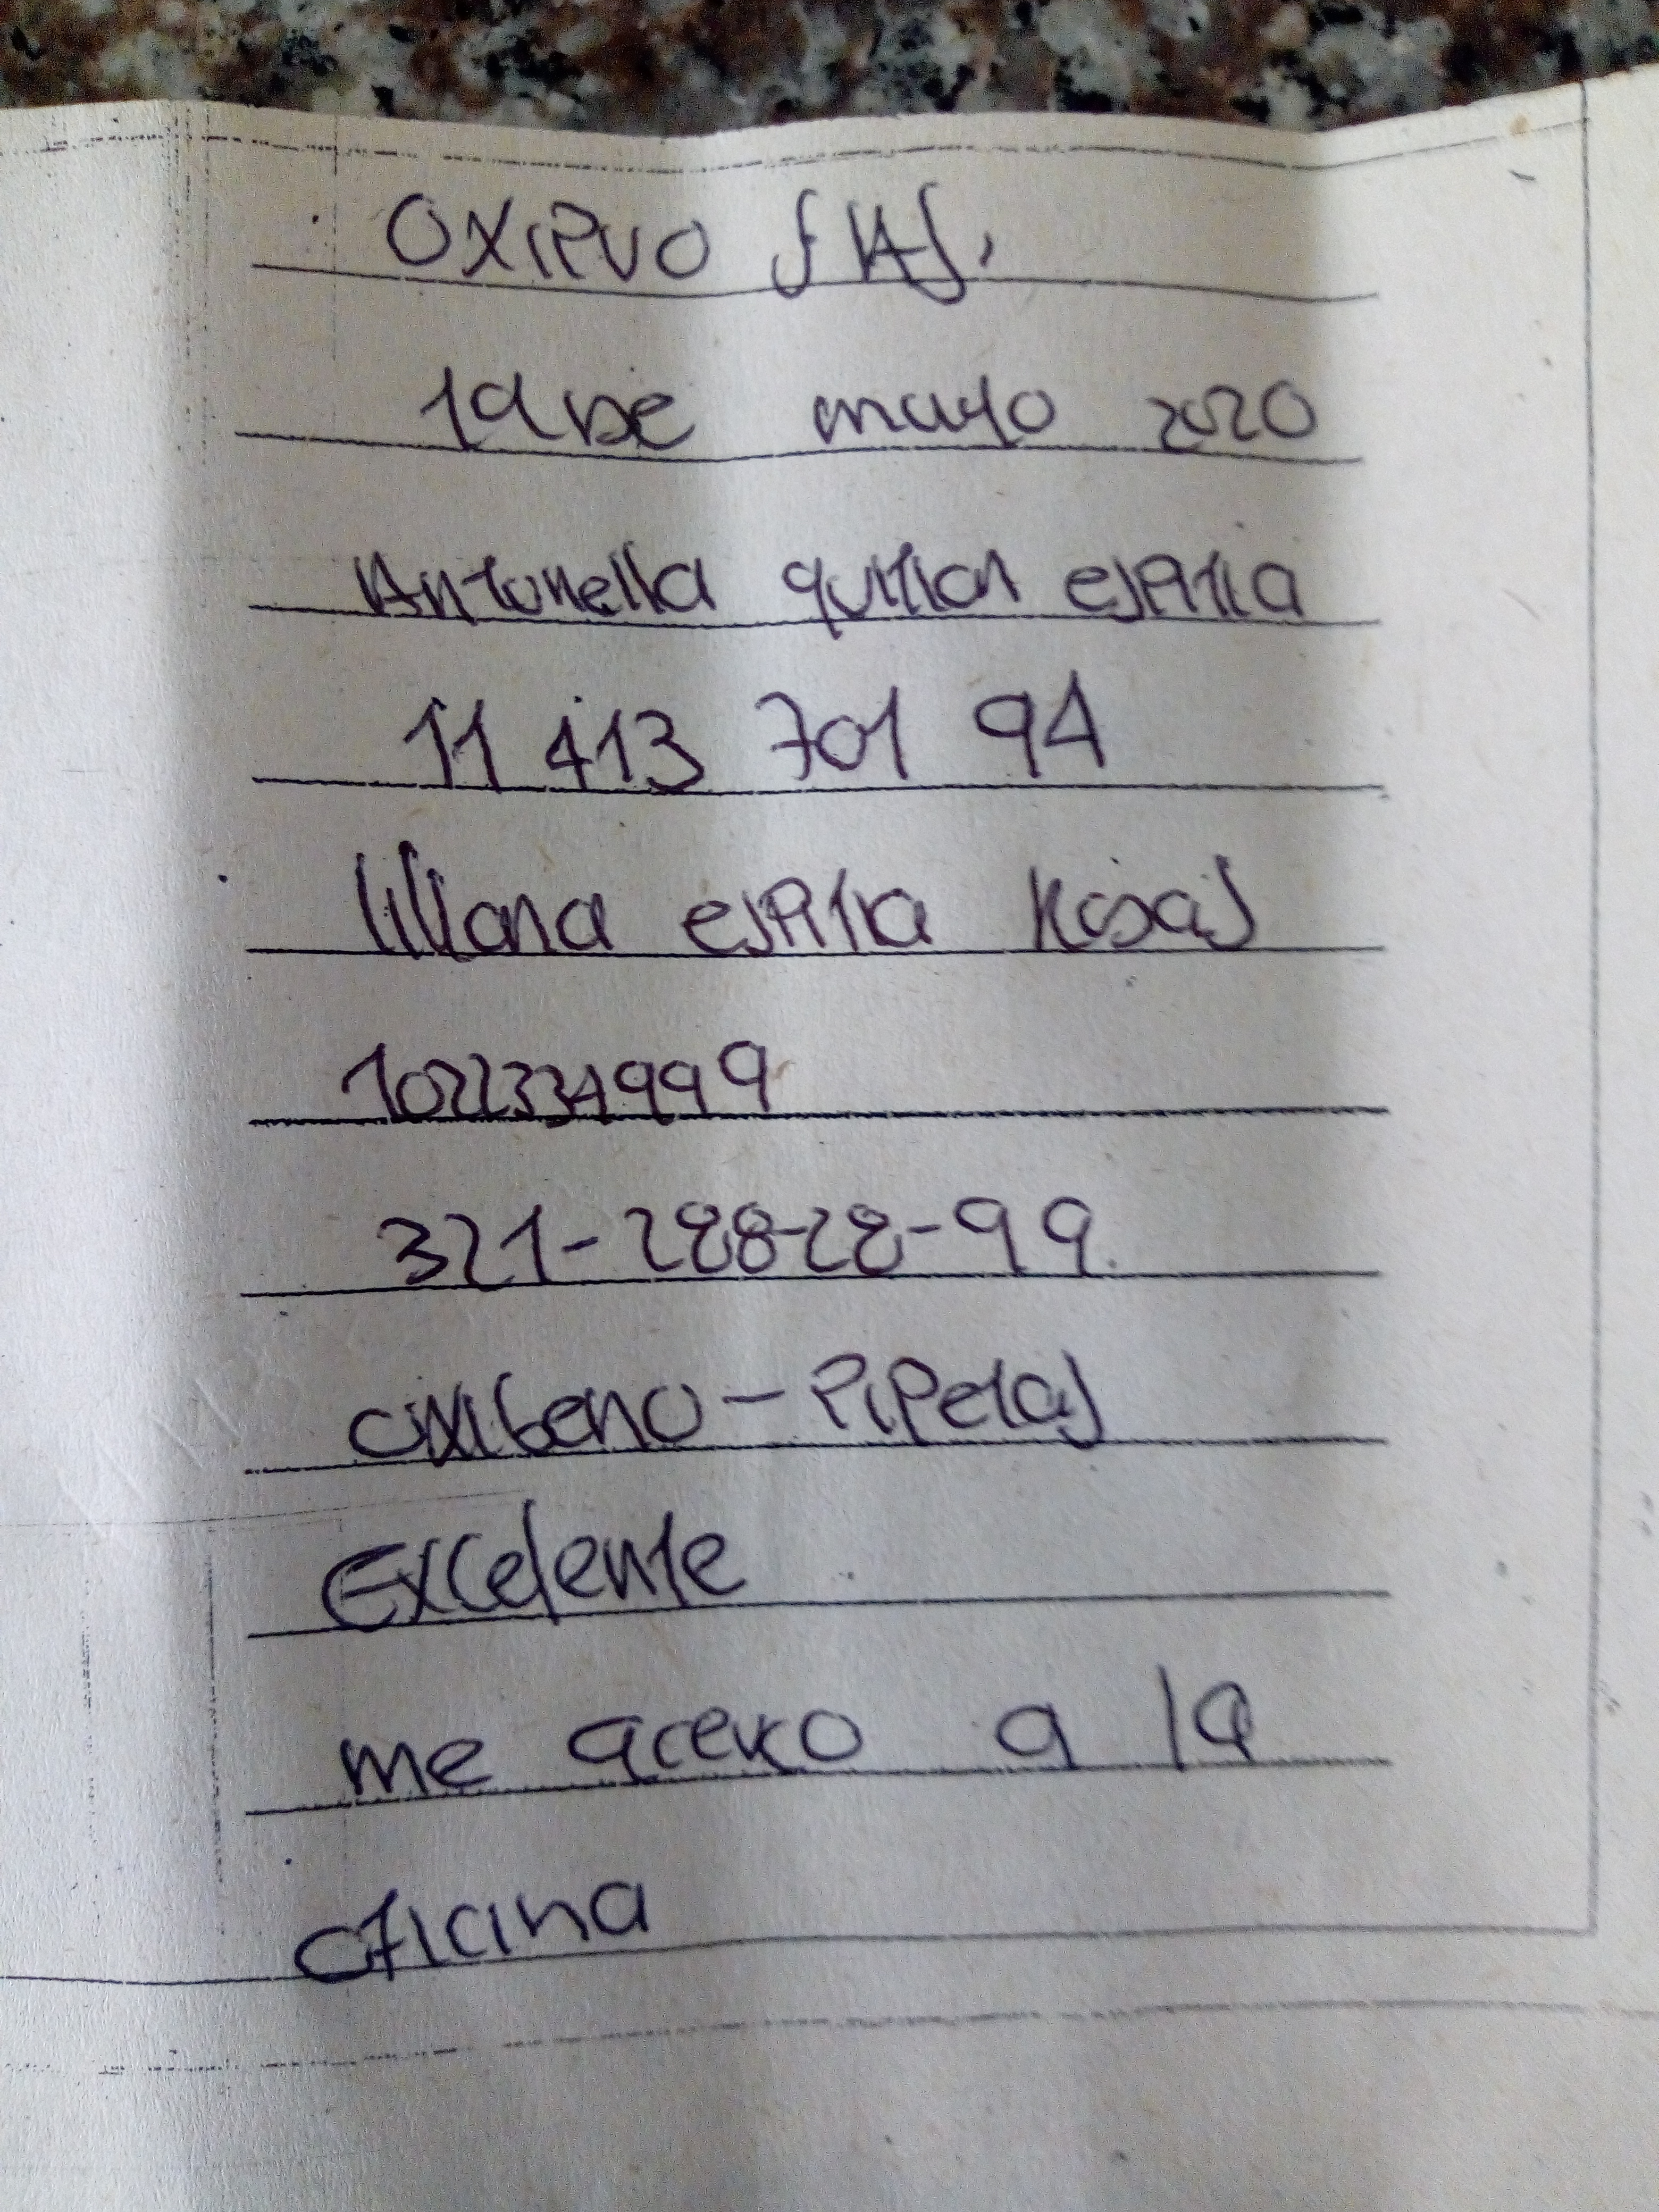 OXIPVO SAS.
19 DE mayo 2020
Antonella quitian espitia
11 413 701 94
liliana espitia Rosas
1022334999
321-288-28-99.
oxigeno - PiPetas
Excelente
me acerco a la
oficina